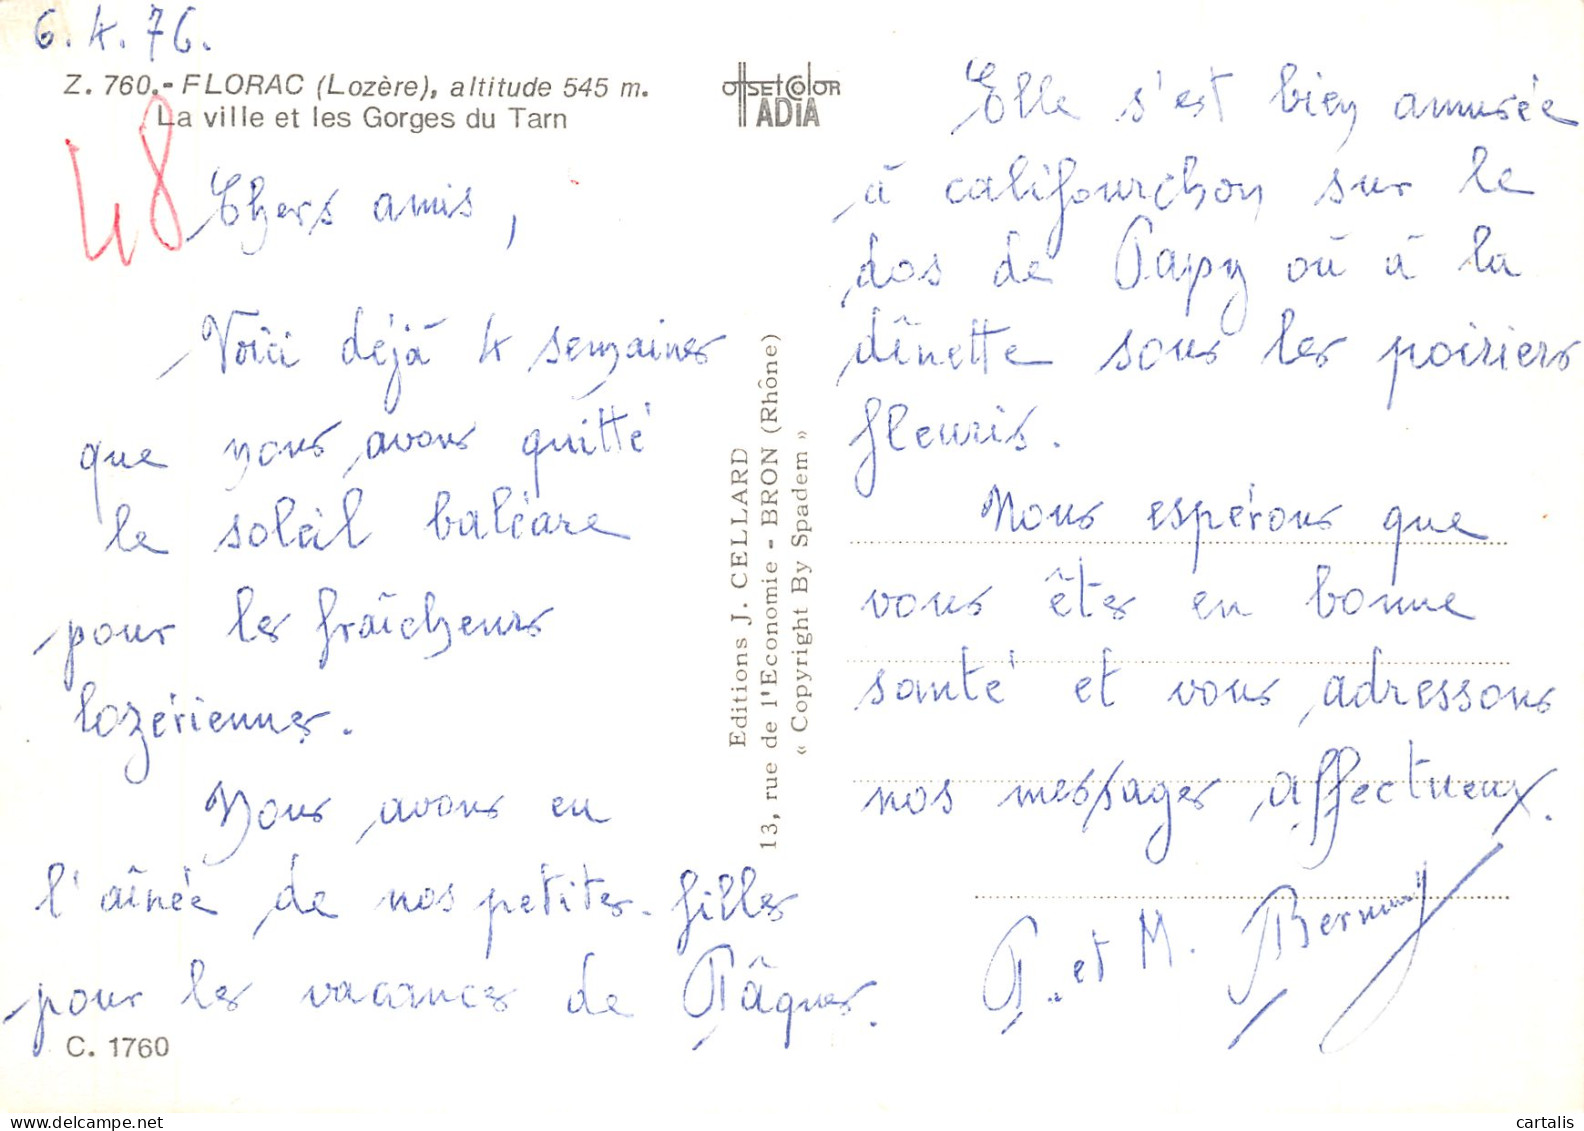 6.4.76.
Z. 760.- FLORAC (Lozère), altitude 545 m.
La ville et les Gorges du Tarn
48
Chers amis,
Voici déjà 4 semaines
que nous avons quitté
le soleil baléare
pour les fraîcheurs
lozériennes.
Nous avons eu
l'aînée de nos petites-filles
pour les vacances de Pâques.
C. 1760
OFFSETCOLOR
ADIA
Editions J. CELLARD
13, rue de l'Economie - BRON (Rhône)
« Copyright By Spadem »
Elle s'est bien amusée
à califourchon sur le
dos de Papy où à la
dînette sous les poiriers
fleuris.
Nous espérons que
vous êtes en bonne
santé et vous adressons
nos messages affectueux.
P. et M.
cartalis